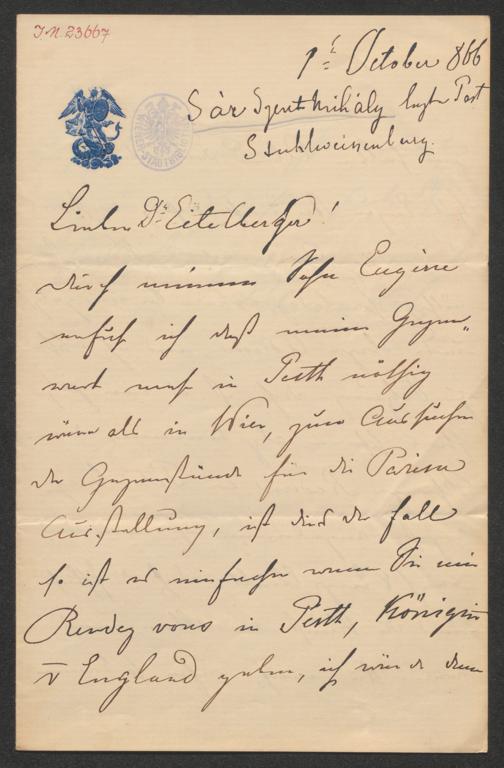 I.N. 23667
1t October 866
Sàr Szent Mihály letzte Post
Stuhlweissenburg.
Lieber Dr Eitelberger!
durch meinen Sohn Eugène
erfuhr ich daß meine Gegen„
wart mehr in Pesth nöthig
wäre als in Wien, zum Aussuchen
der Gegenstände für die Pariser
Ausstellung, ist dies der fall
so ist es einfacher wenn Sie mir
Rendez vous in Pesth, Königin
v England geben, ich würde dann